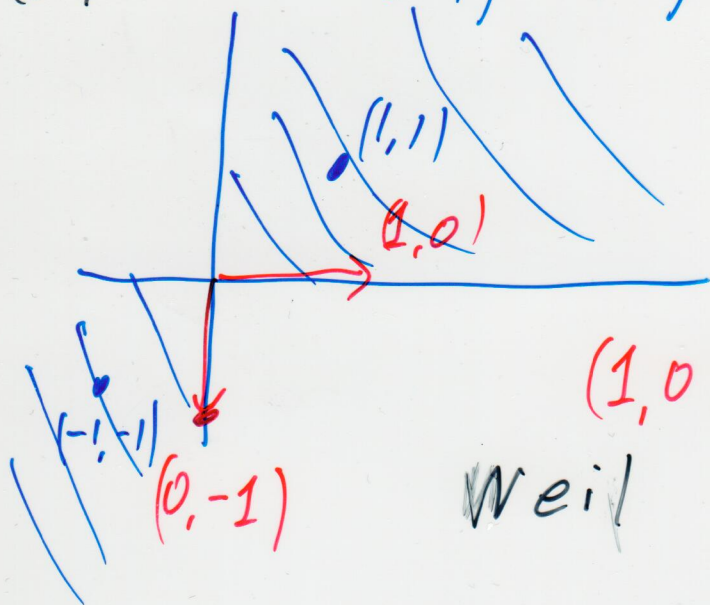 (1,1)
(1,0)
(1,0
(-1,-1)
(0,-1)
Weil